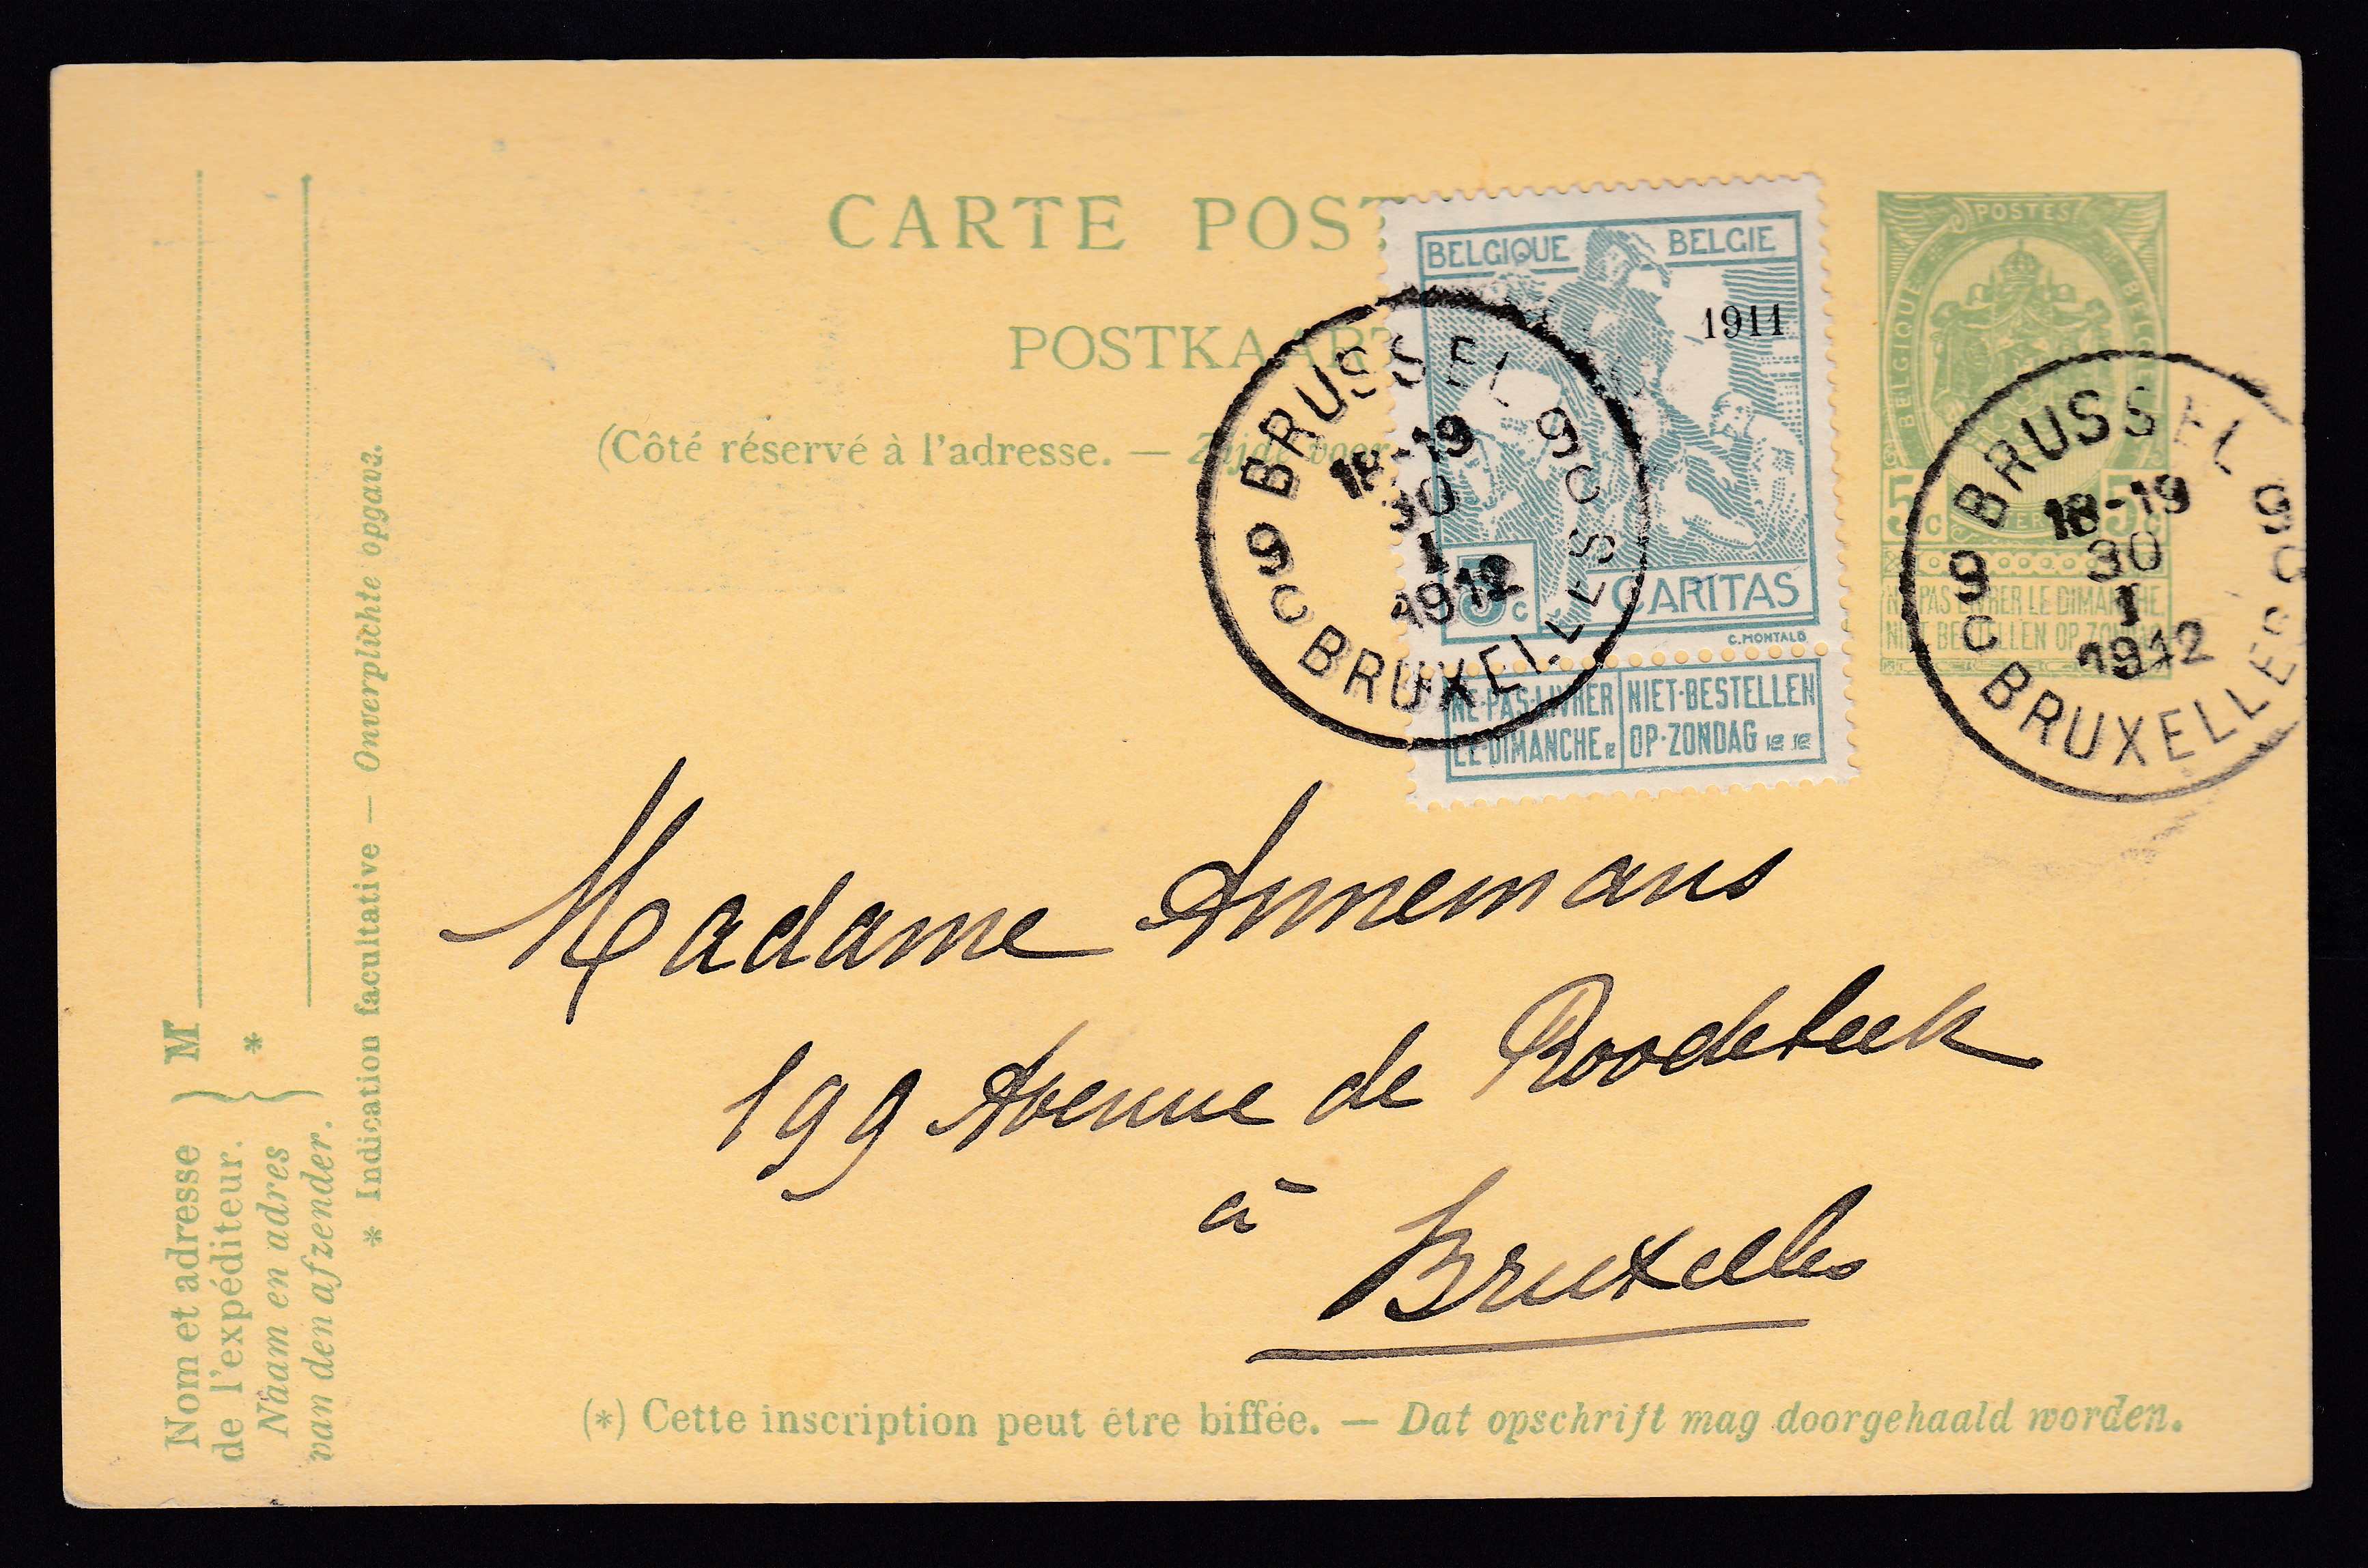 CARTE POST
POSTKAART
(Côté réservé à l'adresse. — Zijde voor
BELGIQUE BELGIE
1911
5 c
CARITAS
C. MONTALD
NE·PAS·LIVRER LE·DIMANCHE
NIET·BESTELLEN OP·ZONDAG
BRUSSEL 9
18-19
30
I
1912
9 C BRUXELLES C
POSTES
BELGIQUE BELGIE
5 C 5 C
NE PAS LIVRER LE DIMANCHE
NIET BESTELLEN OP ZONDAG
BRUSSEL 9
18-19
30
I
1912
9 C BRUXELLES C
Madame Annemans
199 Avenue de Roodebeek
à
Bruxelles
(*) Cette inscription peut être biffée. — Dat opschrift mag doorgehaald worden.
Nom et adresse
de l'expéditeur. } M
Naam en adres
van den afzender. } *
* Indication facultative — Onverplichte opgave.